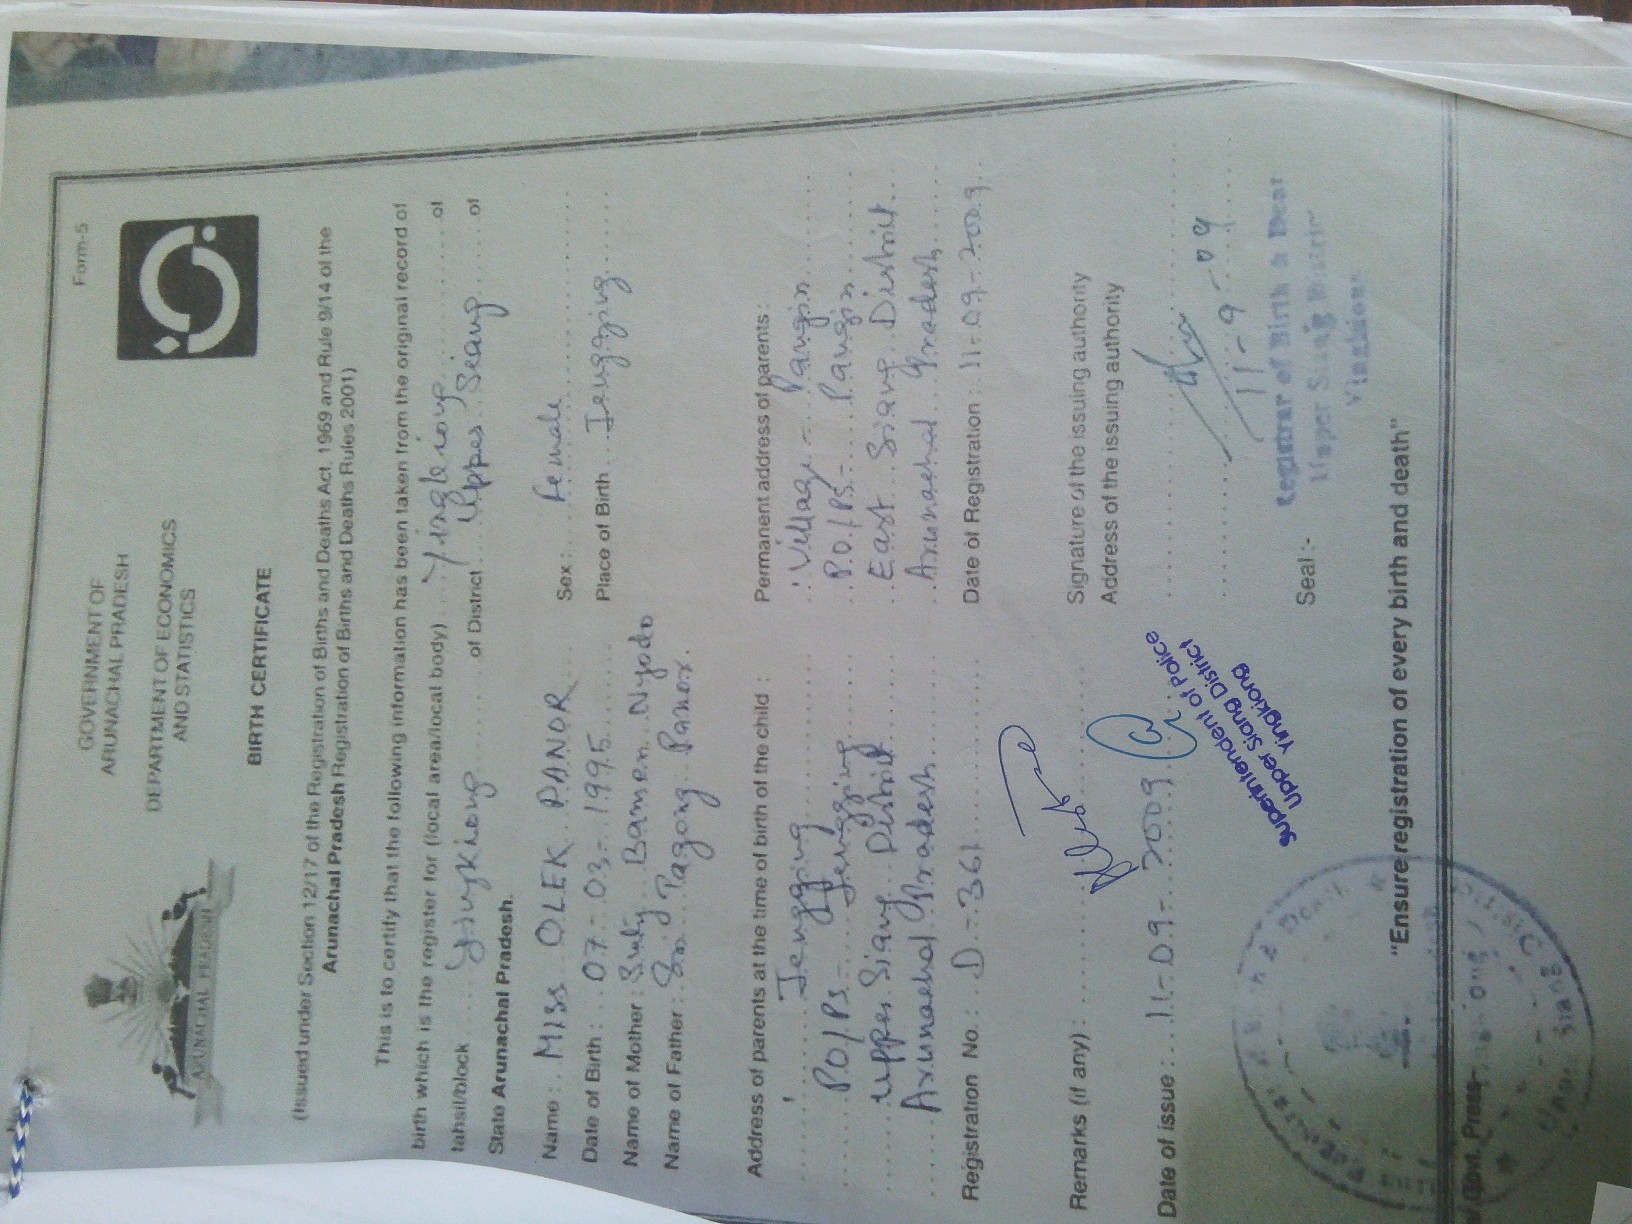 Form-5
GOVERNMENT OF
ARUNACHAL PRADESH
DEPARTMENT OF ECONOMICS
AND STATISTICS
ARUNACHAL PRADESH
BIRTH CERTIFICATE
(Issued under Section 12/17 of the Registration of Births and Deaths Act, 1969 and Rule 9/14 of the
Arunachal Pradesh Registration of Births and Deaths Rules 2001)
This is to certify that the following information has been taken from the original record of
birth which is the register for (local area/local body) Yingkiong of
tahsil/block Yingkiong of District Upper Siang of
State Arunachal Pradesh.
Name : MISS OLEK PANOR Sex : Female
Date of Birth : 07-03-1995 Place of Birth Jengging
Name of Mother : Smty Bamen Nyodo
Name of Father : Sri Pagong Panor.
Address of parents at the time of birth of the child : Permanent address of parents :
Jengging Village - Pangin
PO/PS- Jengging P.O/PS- Pangin
Upper Siang District East Siang District
Arunachal Pradesh Arunachal Pradesh
Registration No. : D-361 Date of Registration : 11-09-2009
Remarks (if any) : Signature of the issuing authority
Address of the issuing authority
Date of issue : 11-09-2009
11-9-09
Superintendent of Police
Upper Siang District
Yingkiong
Registrar of Birth &
Upper Siang
Seal :-
"Ensure registration of every birth and death"
Govt. Press